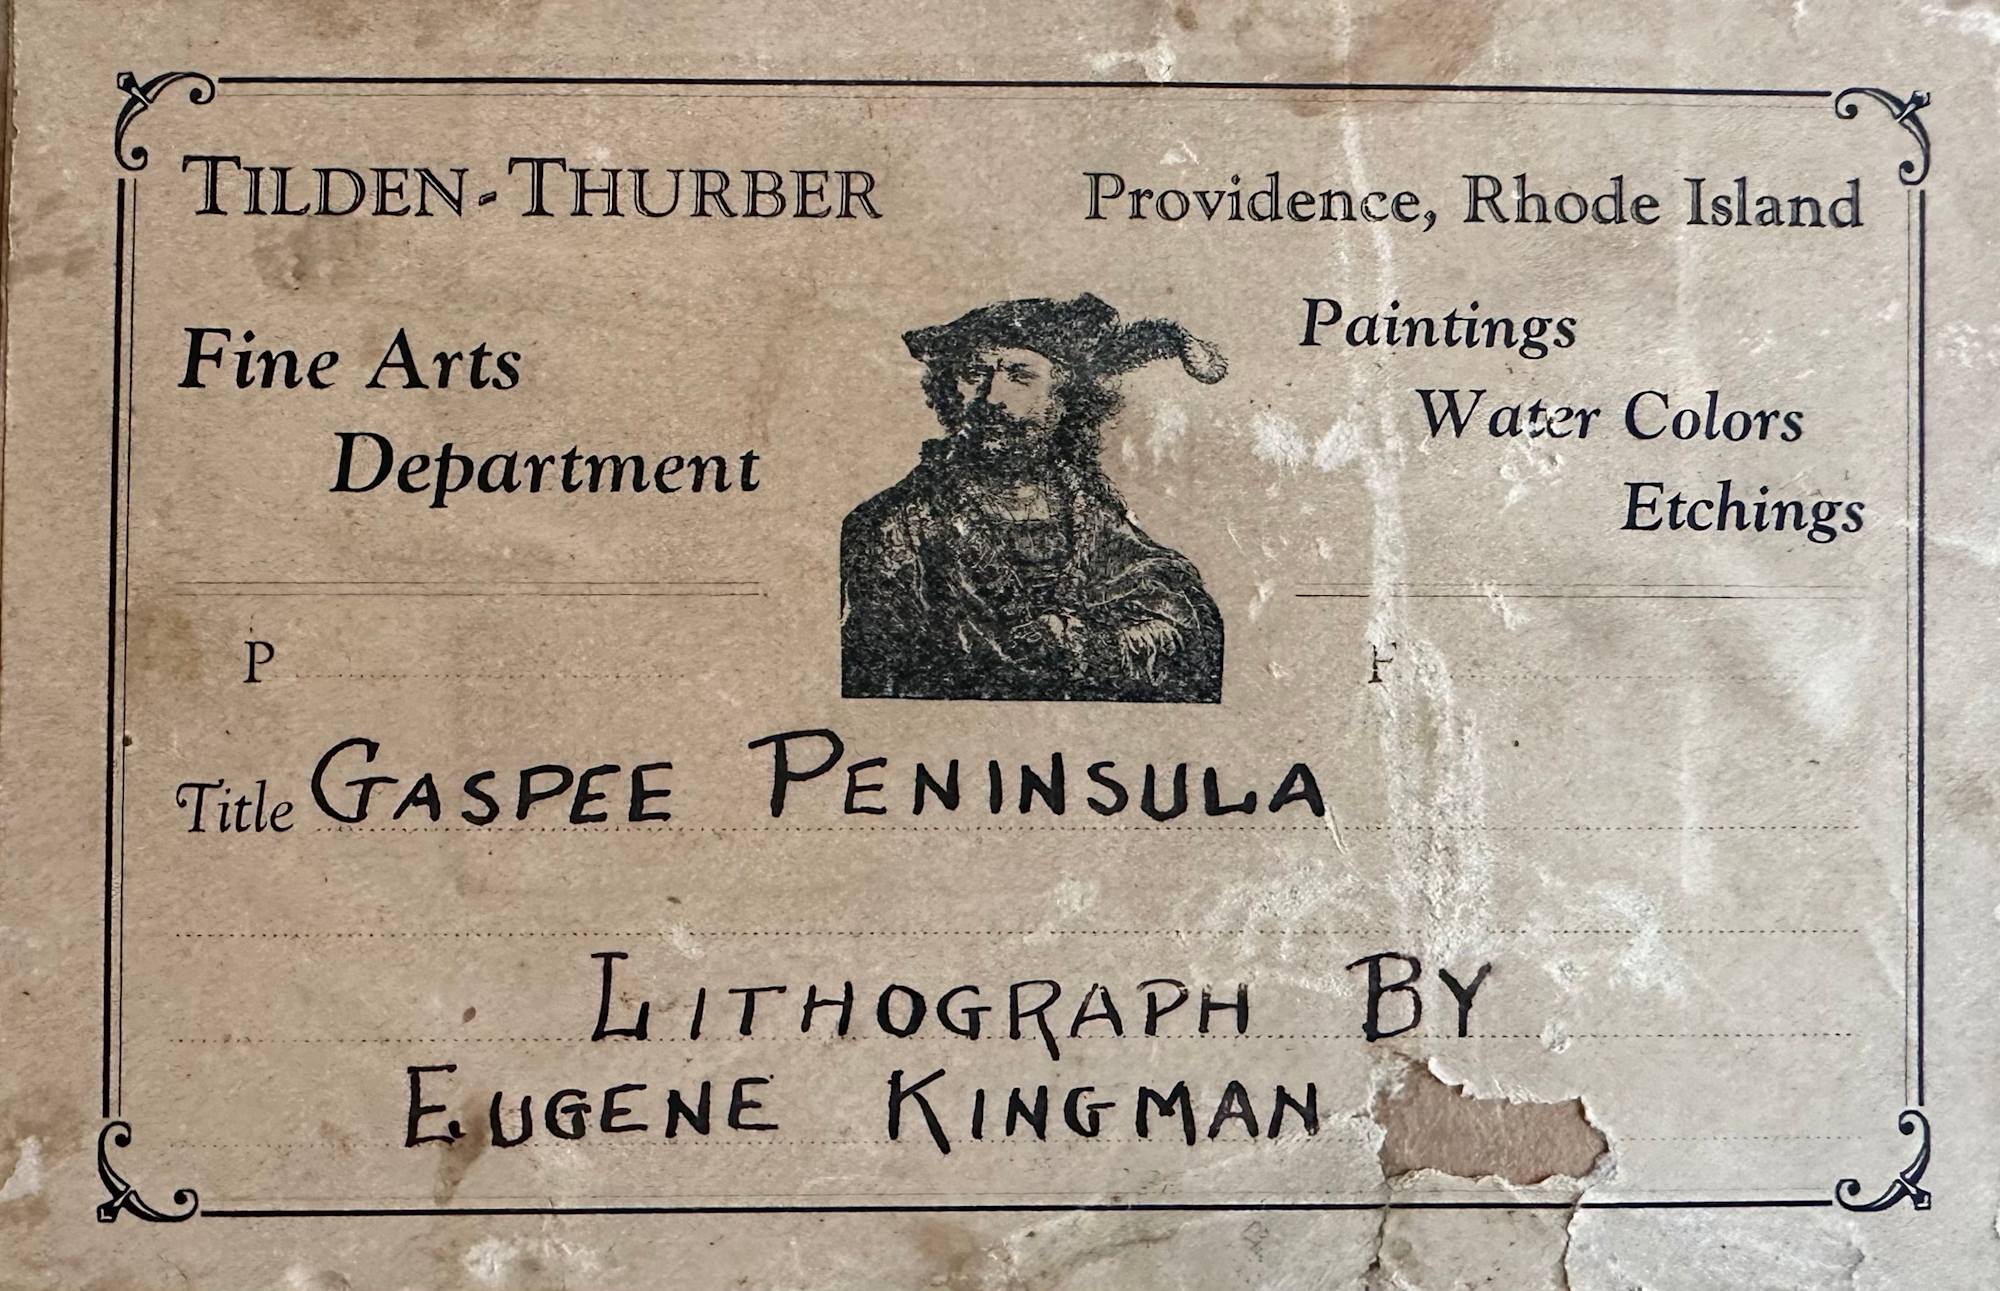 TILDEN-THURBER Providence, Rhode Island
Fine Arts
Department
Paintings
Water Colors
Etchings
P F
Title GASPEE PENINSULA
LITHOGRAPH BY
EUGENE KINGMAN